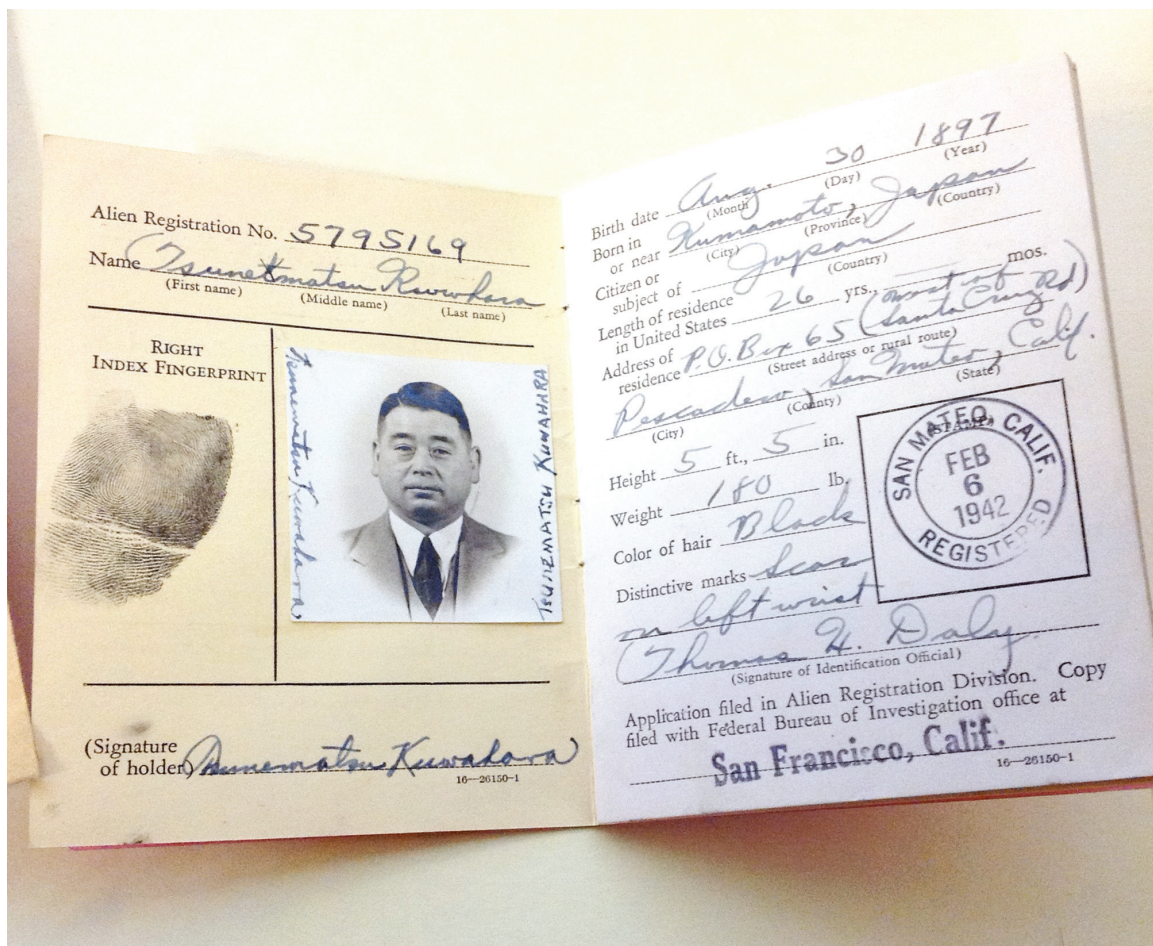 Alien Registration No. 5795169
Name Tsunematsu Kuwhara
(First name) (Middle name) (Last name)
RIGHT
INDEX FINGERPRINT
Tsunematsu Kuwahara
TSUNEMATSU KUWAHARA
(Signature
of holder) Tsunematsu Kuwahara
16—26150-1
Birth date Aug. 30 1897
(Month) (Day) (Year)
Born in
or near Kumamoto, Japan
(City) (Province) (Country)
Citizen or
subject of Japan
(Country)
Length of residence
in United States 26 yrs., mos.
Address of
residence P.O. Box 65 (west of
Santa Cruz Rd)
(Street address or rural route)
Pescadero, San Mateo, Calif.
(City) (County) (State)
Height 5 ft., 5 in.
Weight 180 lb.
Color of hair Black
Distinctive marks Scar
on left wrist
(STAMP)
SAN MATEO, CALIF.
FEB
6
1942
REGISTERED
Thomas H. Daly
(Signature of Identification Official)
Application filed in Alien Registration Division. Copy
filed with Federal Bureau of Investigation office at
San Francisco, Calif.
16—26150-1